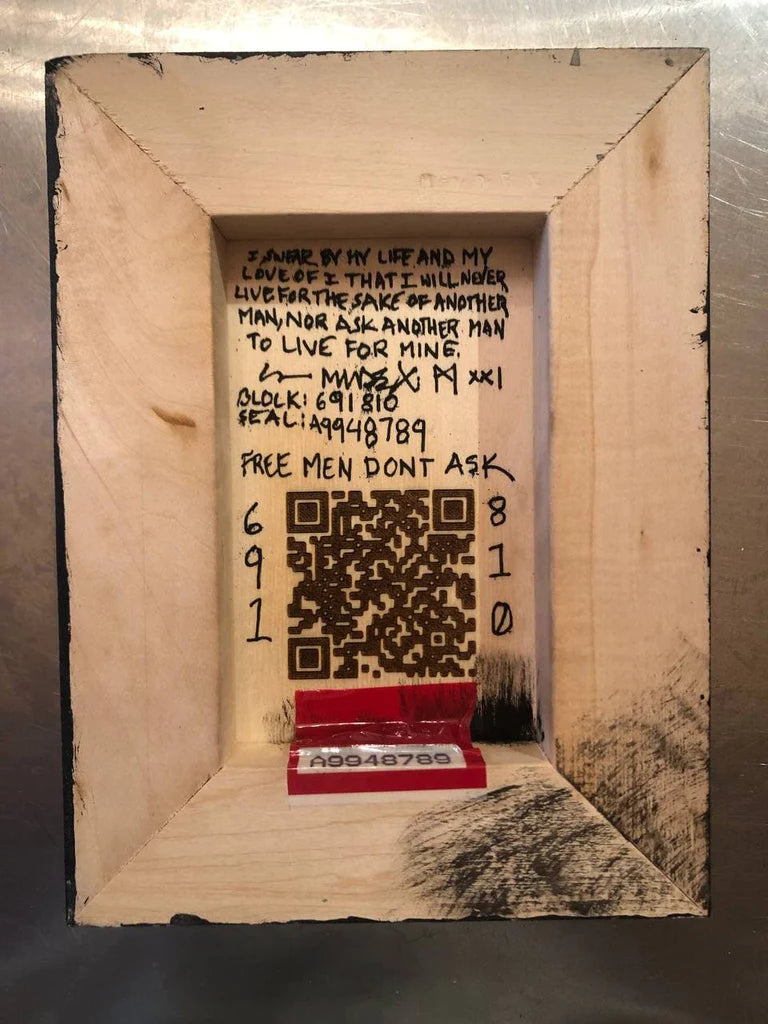 I SWEAR BY MY LIFE AND MY
LOVE OF I THAT I WILL NEVER
LIVE FOR THE SAKE OF ANOTHER
MAN, NOR ASK ANOTHER MAN
TO LIVE FOR MINE.
XXI
BLOCK: 691810
SEAL: A9948789
FREE MEN DONT ASK
6 8
9 1
1 0
A9948789